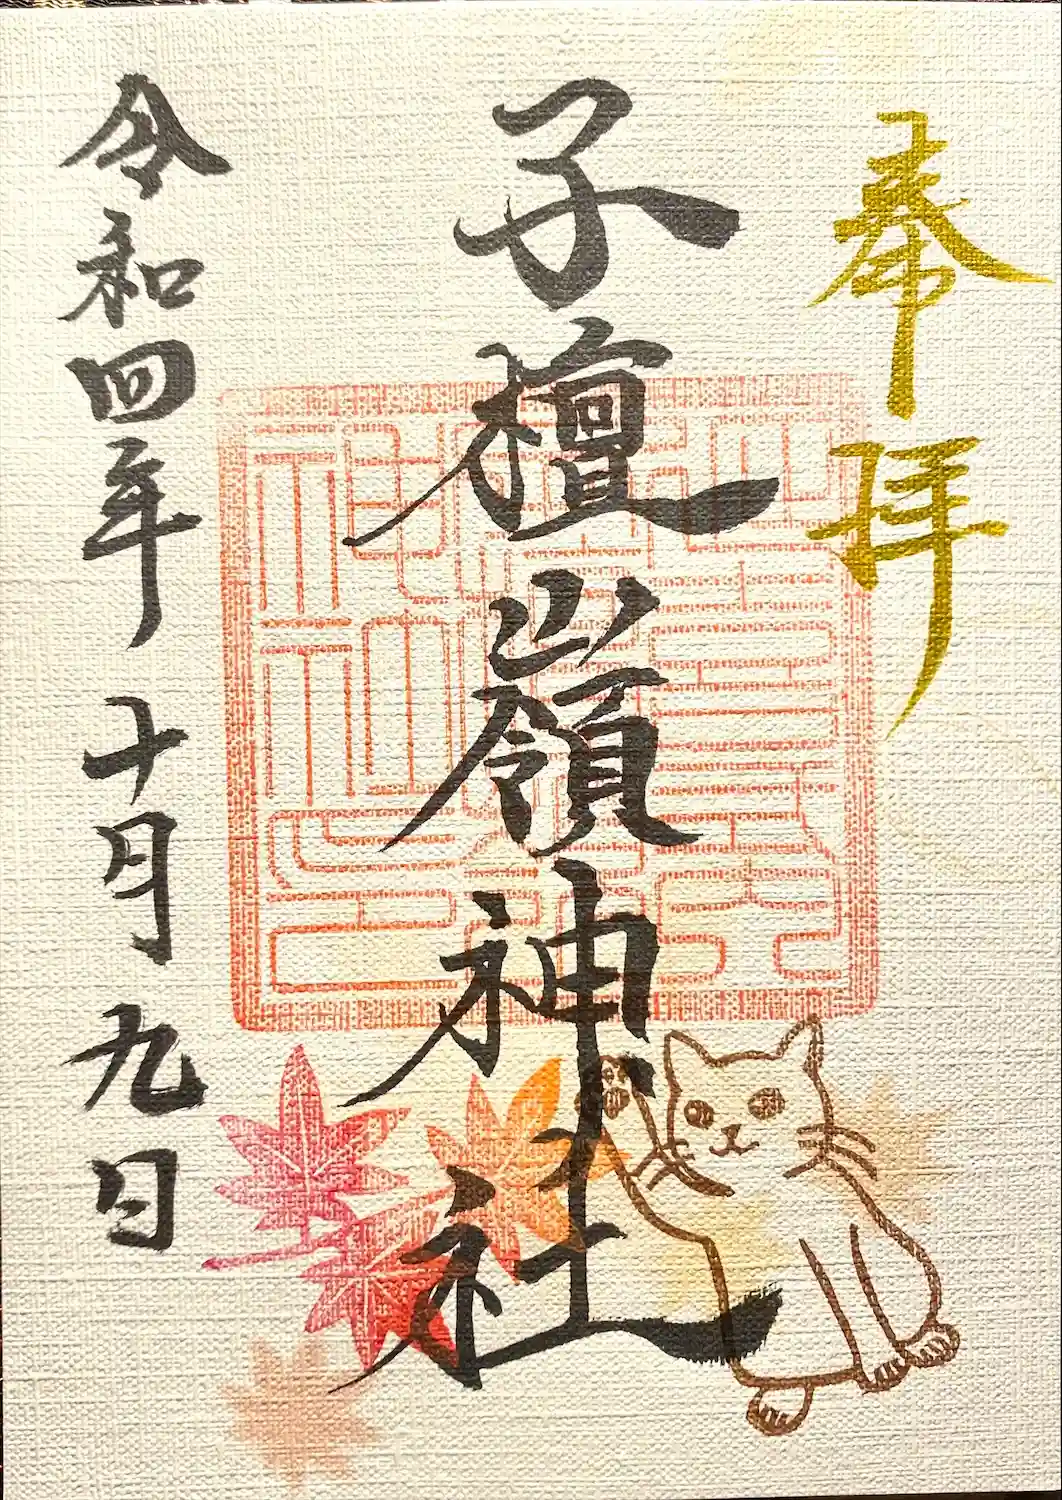 奉拝
子檀嶺神社
令和四年十月九日